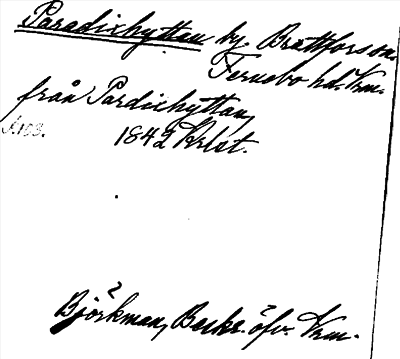 Paradixhyttan by. Brattfors sn.
Fernebo hd. Vrm.
från Pardixhyttan,
1842 Krlst.
Björkman, Beskr. öfv. Vrm.